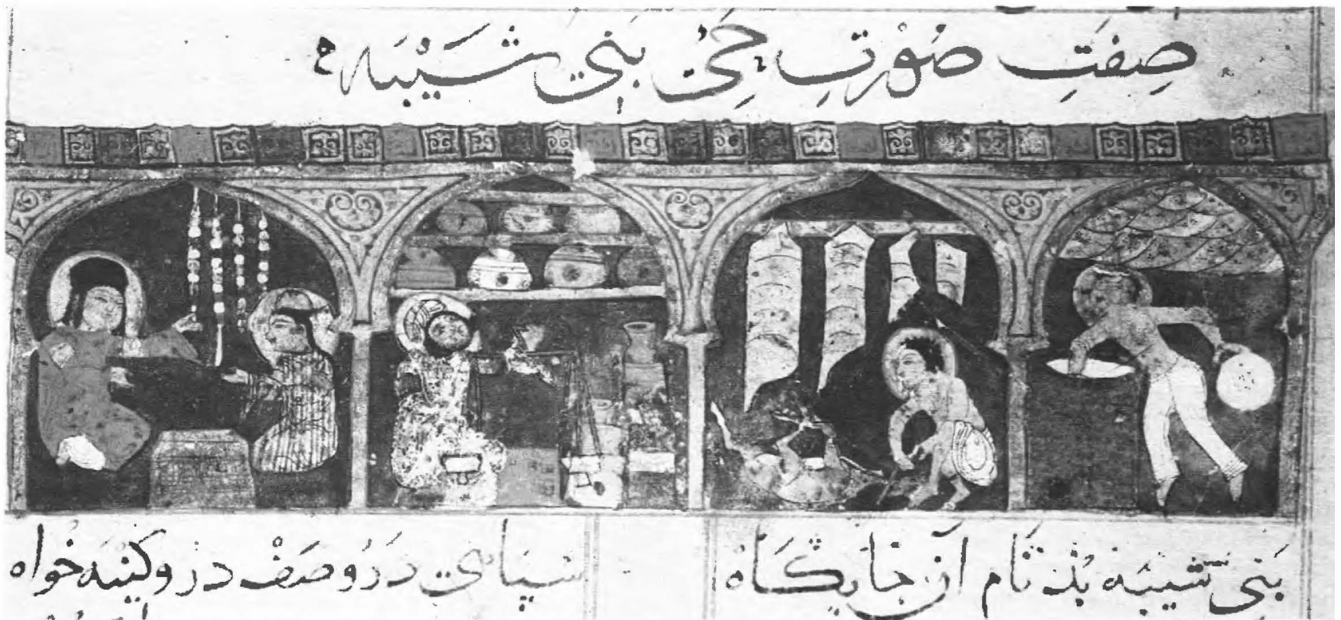 صِفَتِ صُوْرتِ حَیِّ بَنیِ شَیْبَه
بَنیِ شَیبَه بُذ نَام آن جَایگَاه سپاهی دَرُو صَفْ در و کینَه خواه